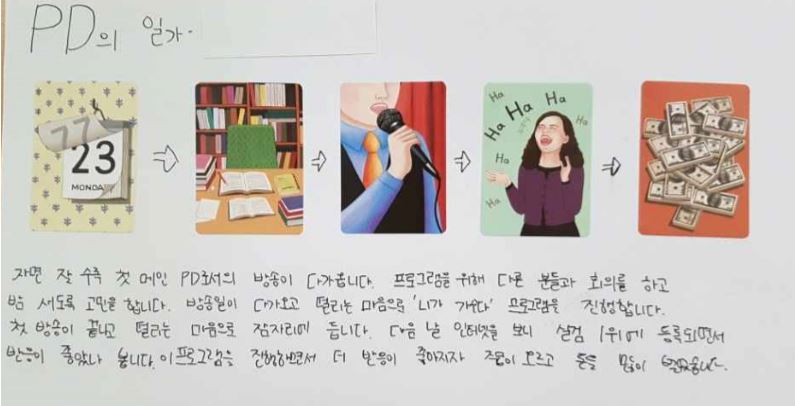 PD의 일과.
77
23
MONDAY
Ha
Ha
Ha Ha
Ha
Ha
Ha
잘 첫 메인 PD로서의 방송이 다가옵니다. 프로그램을 위해 다른 분들과 회의를 하고
밤 새도록 고민을 합니다. 방송일이 다가오고 떨리는 마음으로 '니가 가수다' 프로그램을 진행합니다.
첫 방송이 끝나고 떨리는 마음으로 잠자리에 듭니다. 다음 날 인터넷을 보니 실검 1위에 등록되면서
반응이 좋았나 봅니다. 이 프로그램을 진행하면서 더 반응이 좋아지자 오르고 돈을 많이